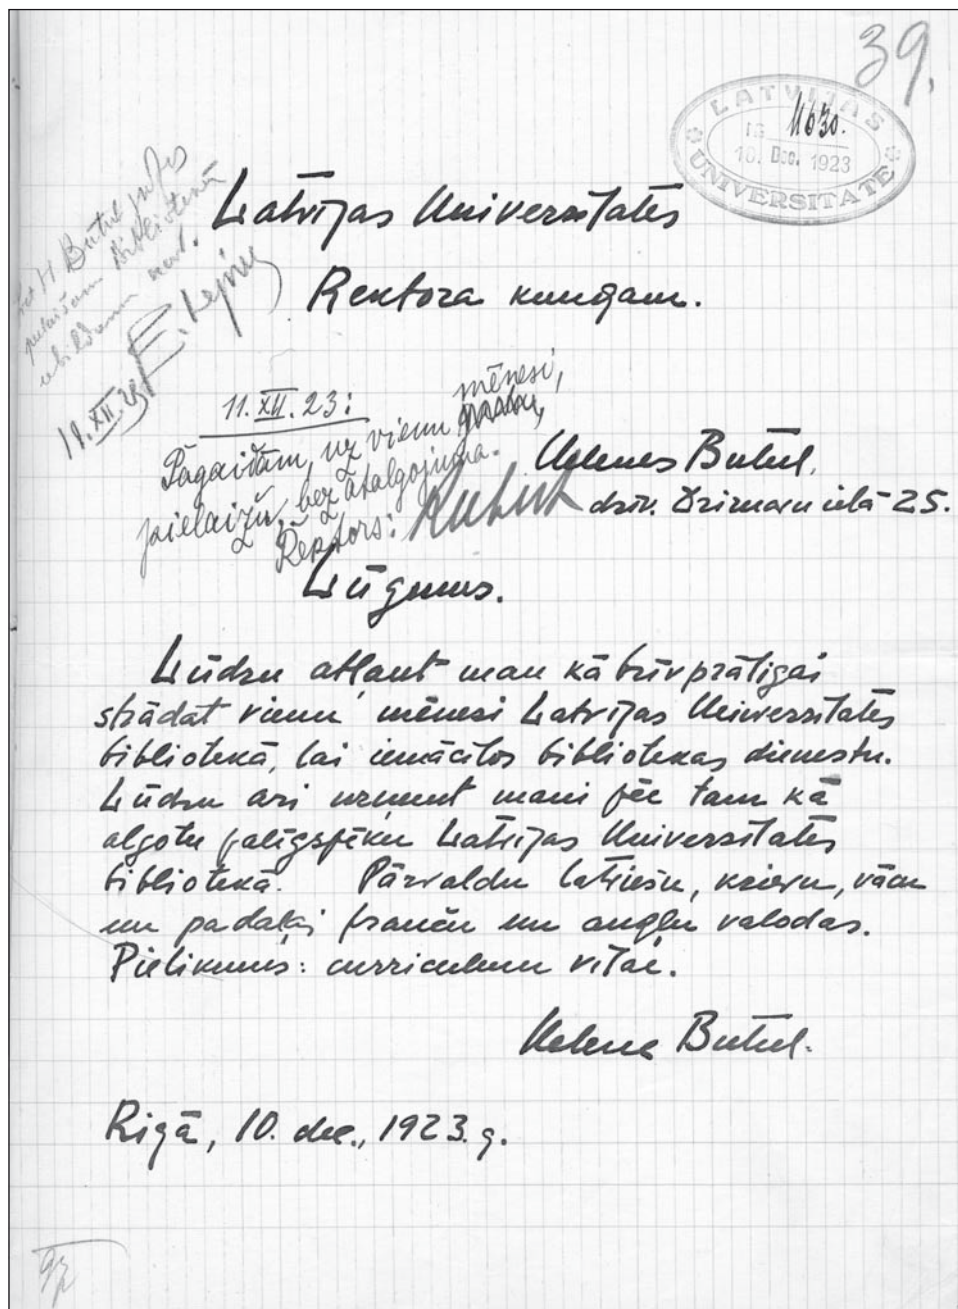 39.
LATVIJAS
11630.
10. Dec. 1923
UNIVERSITATE
Latvijas Universitātes
Rektora kungam.
H Butul
E.
11. XII. 23
11. XII. 23:
mēnesi,
Pagaidām, uz vienu
pielaižu, bez atalgojuma.
Rektors:
Helenes Butul,
dzīv. Dzirnavu ielā 25.
Lūgums.
Lūdzu atļaut man kā brīvprātīgai
strādāt vienu mēnesi Latvijas Universitātes
bibliotekā, lai iemācītos bibliotekas dienestu.
Lūdzu arī uzņemt mani pēc tam kā
algotu palīgspēku Latvijas Universitātes
bibliotekā. Pārvaldu latviešu, krievu, vācu
un padaļai franču un angļu valodas.
Pielikums: curriculum vitae.
Helene Butul.
Rīgā, 10. dec., 1923. g.